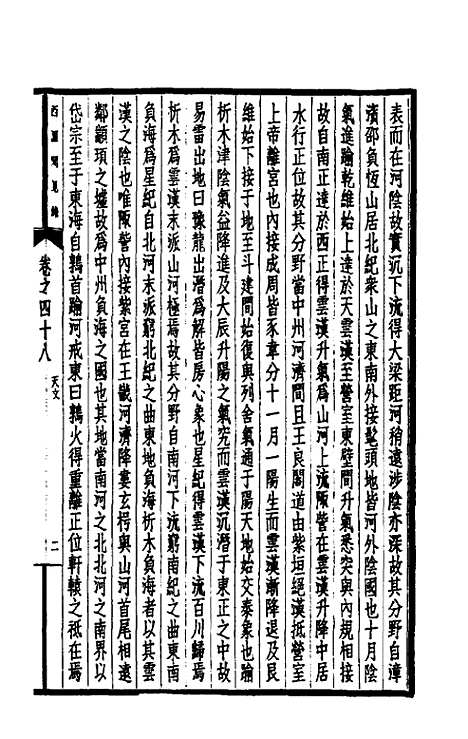 表而在河陰故實沉下流得大梁距河稍遠涉陰亦深故其分野自漳
濱卻負恆山居北紀衆山之東南外接髦頭地皆河外陰國也十月陰
氣進踰乾維始上達於天雲漢至營室東壁間升氣悉究與內規相接
故自南正達於西正得雲漢升氣爲山河上流陬訾在雲漢升降中居
水行正位故其分野當中州河濟間且王良閣道由紫垣絕漢抵營室
上帝離宮也內接成周皆豕韋分十一月一陽生而雲漢漸降退及艮
維始下接于地至斗建間始復與列舍氣通于陽天地始交泰象也踰
析木津陰氣益降進及大辰升陽之氣究而雲漢沉潛于東正之中故
易雷出地曰豫龍出潛爲解皆房心象也星紀得雲漢下流百川歸焉
析木爲雲漢末派山河極焉故其分野自南河下流窮南紀之曲東南
負海爲星紀自北河末派窮北紀之曲東地負海析木負海者以其雲
漢之陰也惟陬訾內接紫宮在王畿河濟降婁玄枵與山河首尾相遠
鄰顓頊之墟故爲中州負海之國也其地當南河之北北河之南界以
岱宗至于東海自鶉首踰河戒東曰鶉火得重離正位軒轅之祗在焉
西園聞見錄
卷之四十八
天文
二